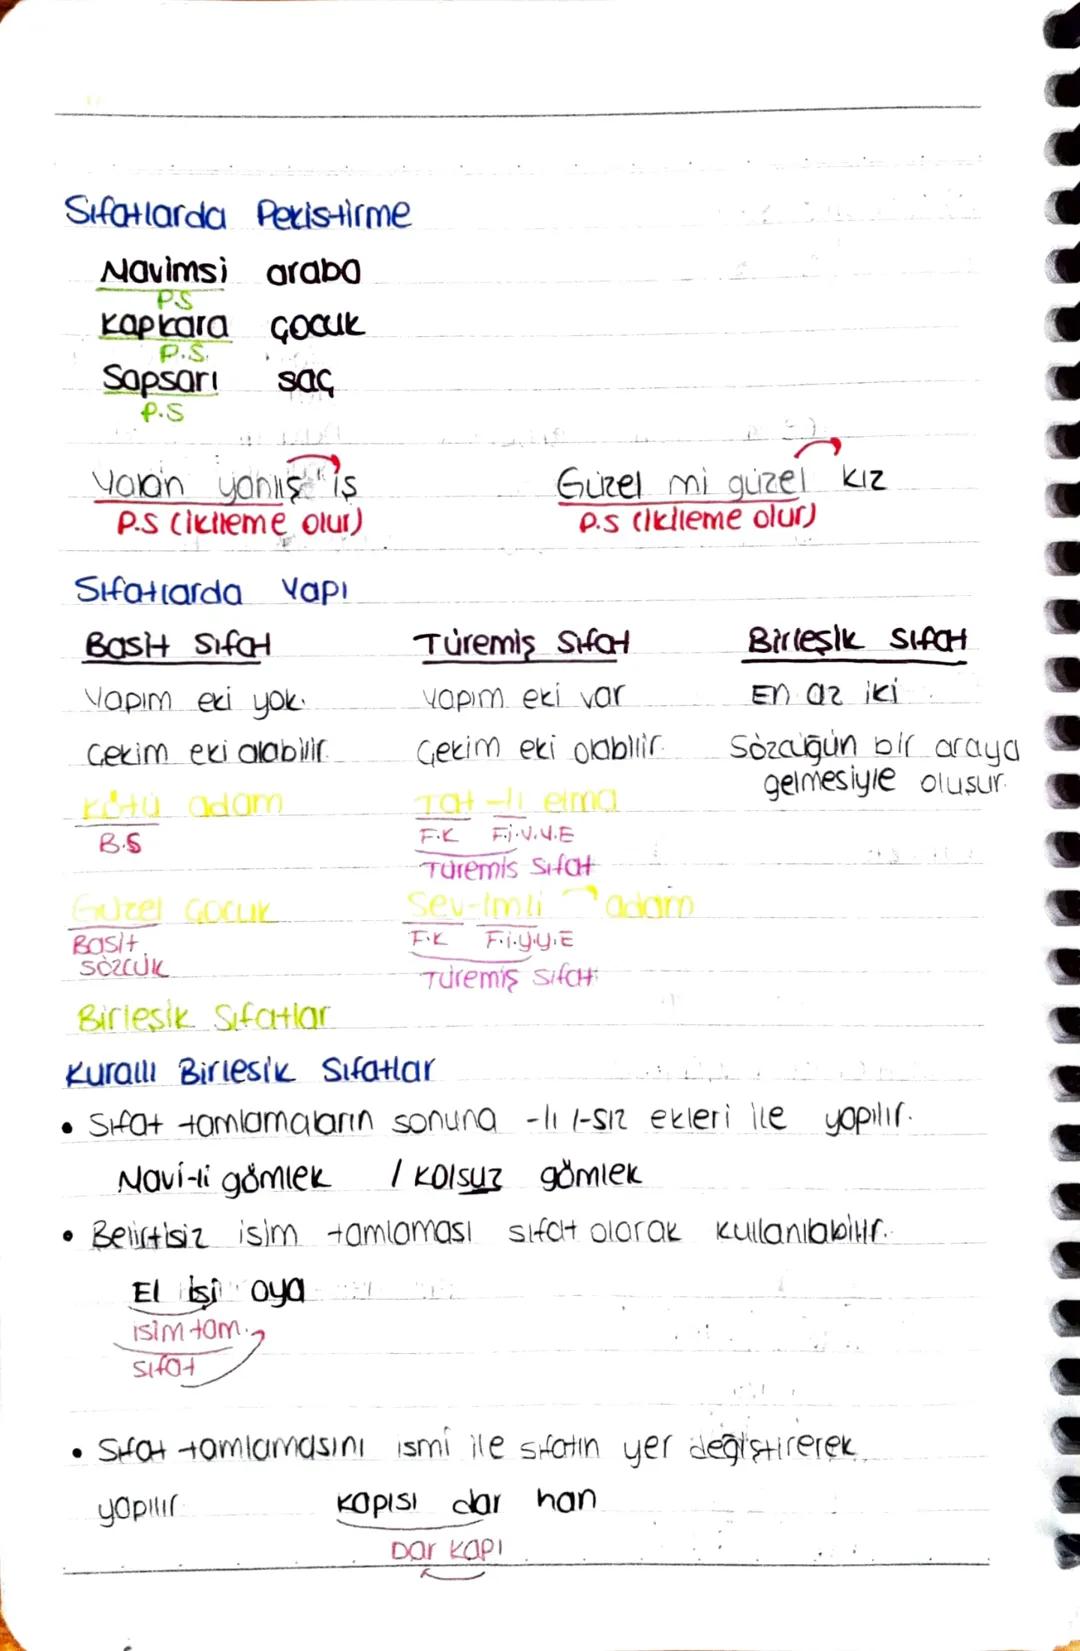 Sıfatlarda Pekistirme
Mavimsi araba
P.S
Kapkara çocuk
P.S.
Sapsarı saç
P.S
Yalan yanlış iş
P.S (ikileme olur)
Güzel mi güzel kız
P.S (ikileme olur)
Sıfatlarda Yapı
Basit Sıfat
Türemiş Sıfat
Birleşik Sıfat
Yapım eki yok.
Yapım eki var
En az iki
Çekim eki alabilir.
Çekim eki alabilir.
Sözcüğün bir araya
gelmesiyle oluşur.
Kötü adam
Tat-lı elma
B.S
F.K F.i.Y.Y.E
Türemiş Sıfat
Güzel çocuk
Sev-imli adam
Basit
F.K F.i.y.y.E
sözcük
Türemiş sıfat
Birleşik Sıfatlar
Kurallı Birlesik Sıfatlar
• Sıfat tamlamaların sonuna -lı /-sız ekleri ile yapılır.
Mavi-li gömlek / Kolsuz gömlek
• Belirtisiz isim tamlaması sıfat olarak kullanılabilir.
El işi oya
isim tam.
sıfat
• Sıfat tamlamasını ismi ile sıfatın yer değiştirerek
yapılır
kapısı dar han
Dar kapı